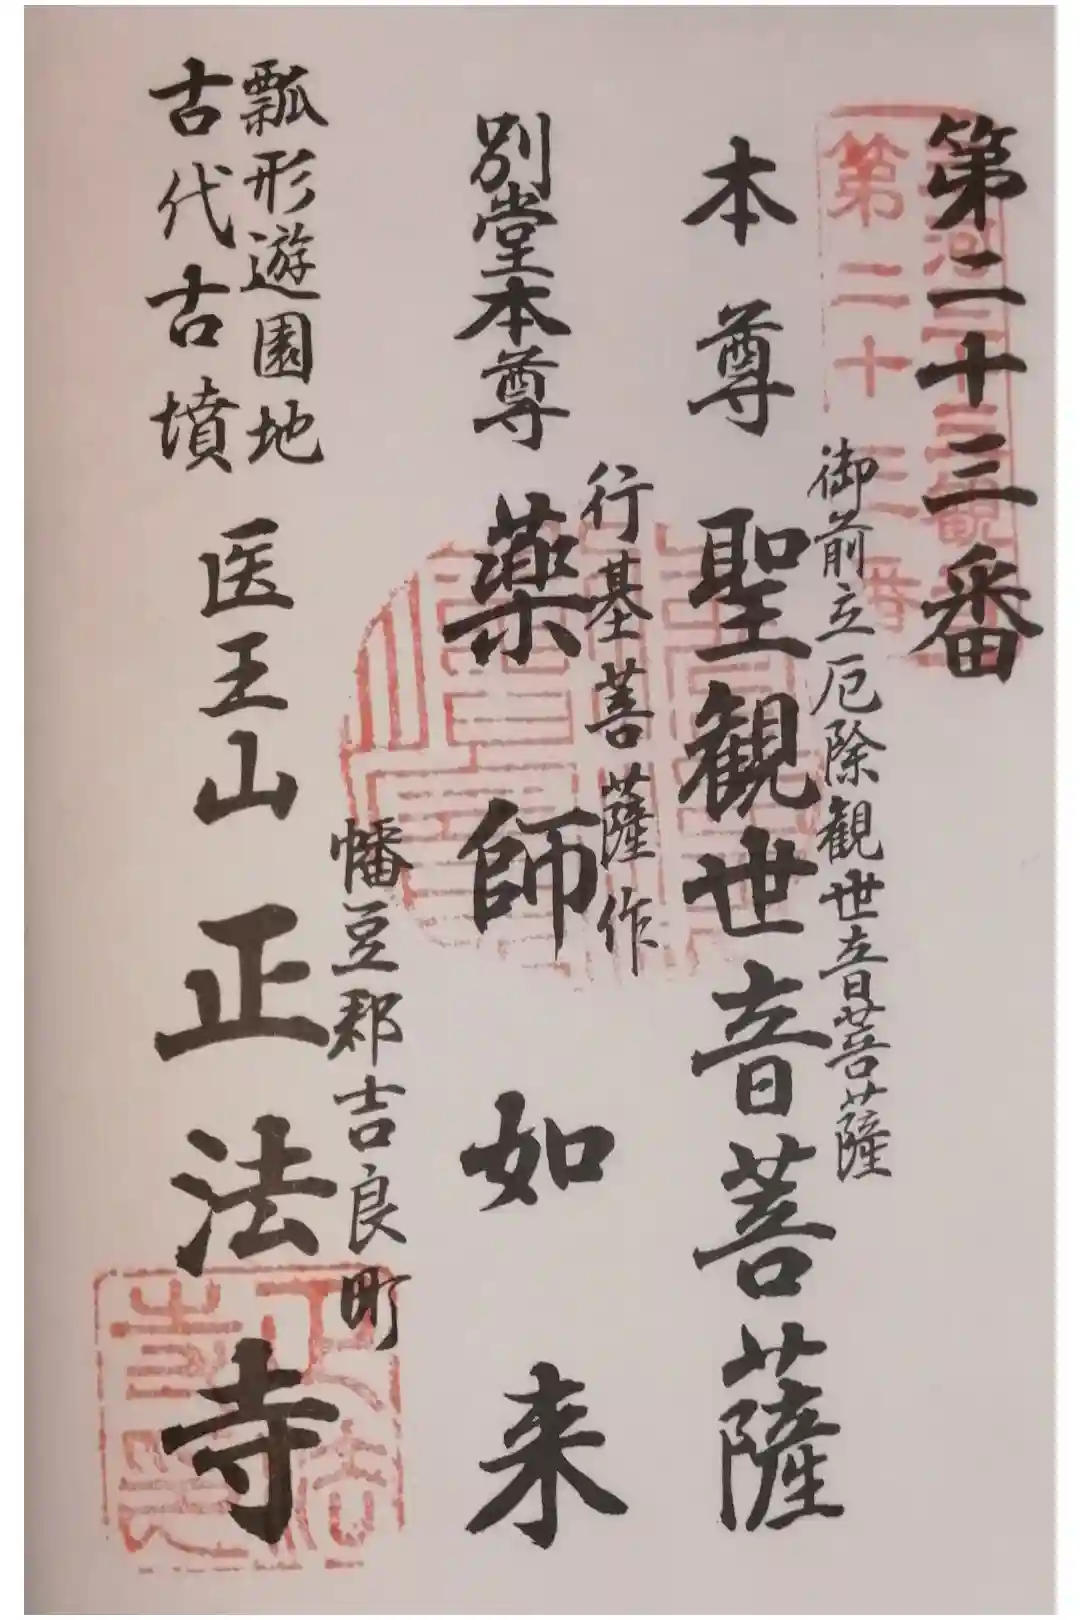 第二十三番
第二十三番
御前立厄除観世音菩薩
本尊聖観世音菩薩
行基菩薩作
別堂本尊薬師如来
幡豆郡吉良町
瓢形遊園地
古代古墳
医王山正法寺